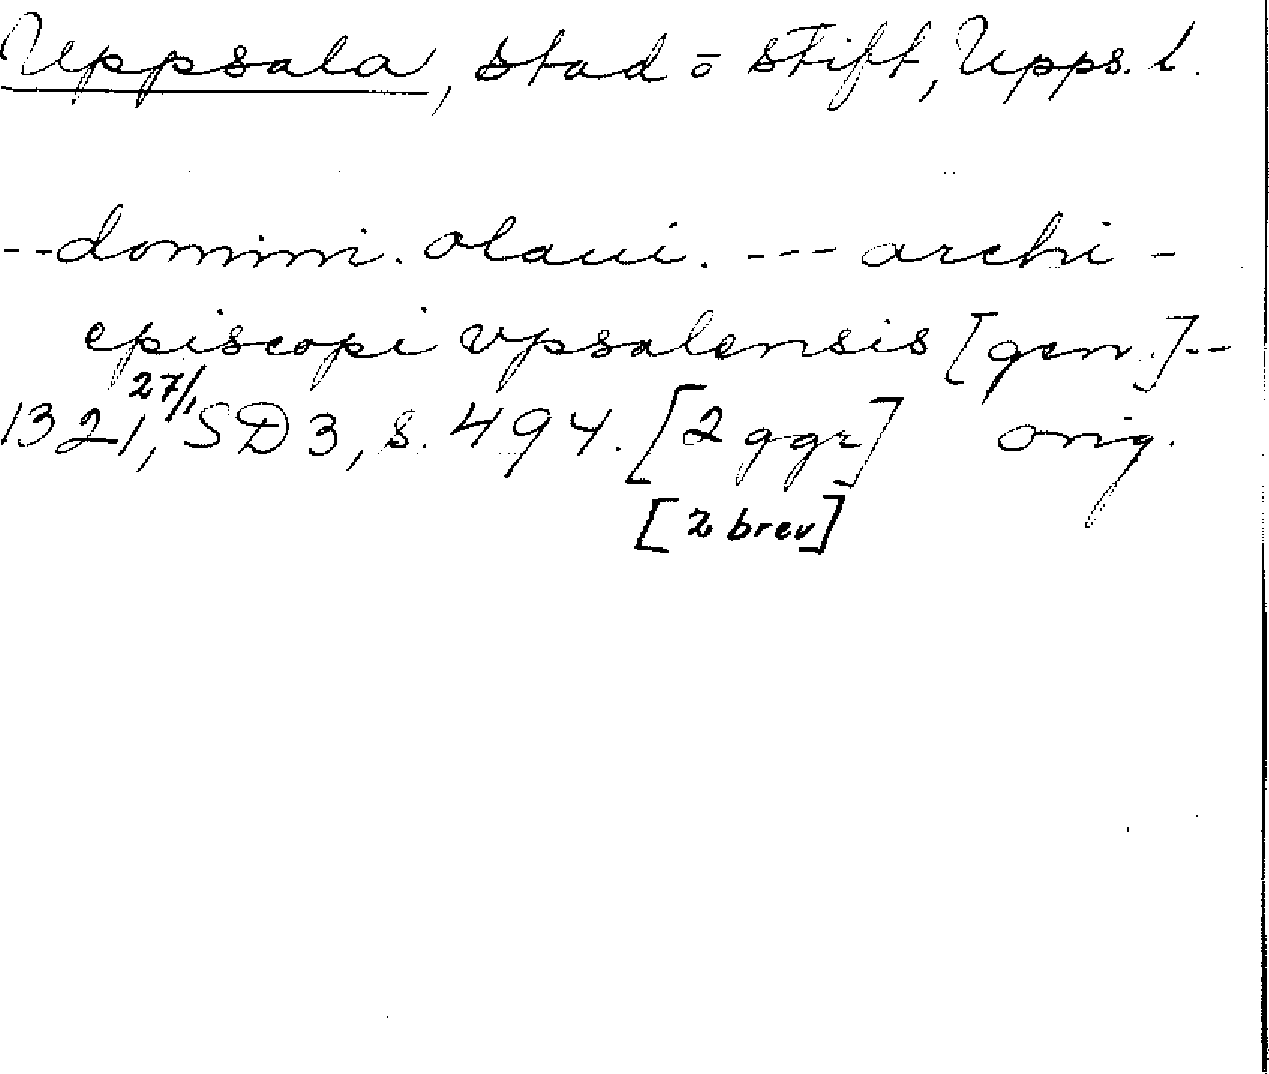 Uppsala, stad o stift, Upps. l.
--domini. olaui. --- archi-
episcopi vpsalensis [gen.]--
1321, 27/1, SD 3, s. 494. [2 ggr] orig.
[2 brev]